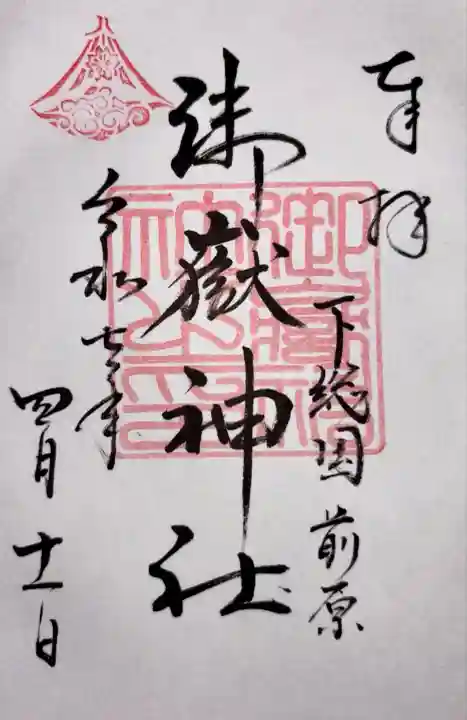 奉拝
下総国前原
御嶽神社
令和七年
四月十一日
御嶽神社之印